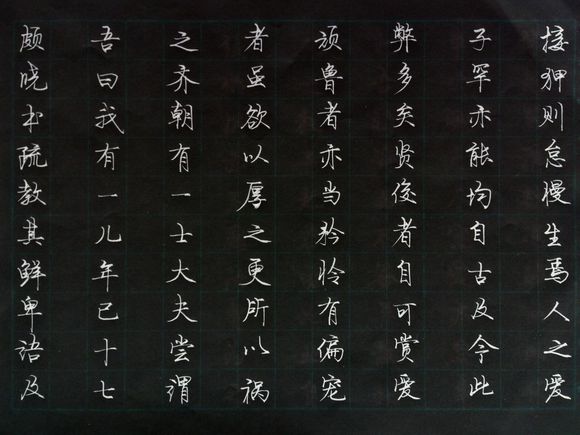 接狎则怠慢生焉人之爱
子罕亦能均自古及今此
弊多矣贤俊者自可赏爱
顽鲁者亦当矜怜有偏宠
者虽欲以厚之更所以祸
之齐朝有一士大夫尝谓
吾曰我有一儿年已十七
颇晓书疏教其鲜卑语及